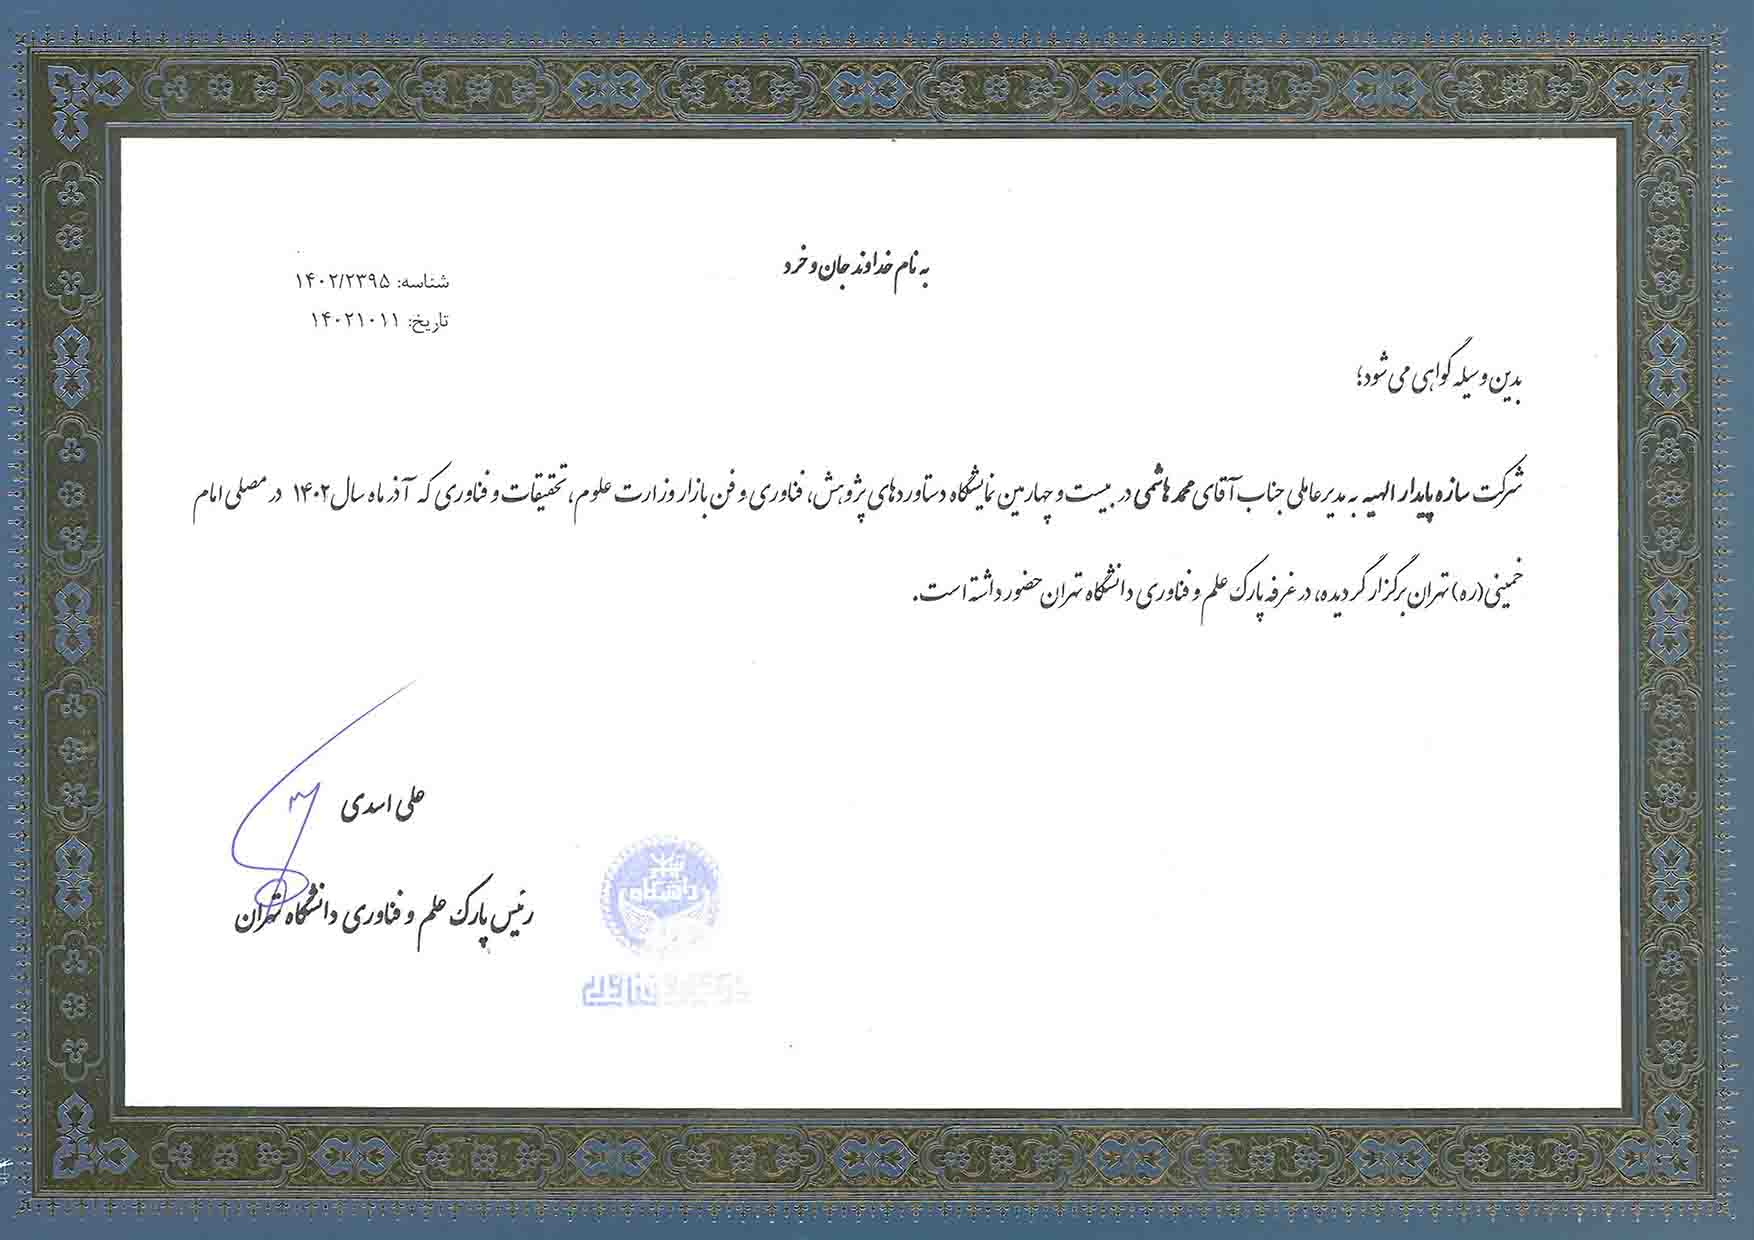 به نام خداوند جان و خرد
شناسه: ۱۴۰۲/۲۳۹۵
تاریخ: ۱۴۰۲۱۰۱۱
بدین وسیله گواهی می شود؛
شرکت سازه پایدار الهیه به مدیرعاملی جناب آقای محمد هاشمی در بیست و چهارمین نمایشگاه دستاوردهای پژوهش، فناوری و فن بازار وزارت علوم، تحقیقات و فناوری که آذر ماه سال ۱۴۰۲ در مصلی امام
خمینی(ره) تهران برگزار گردیده، در غرفه پارک علم و فناوری دانشگاه تهران حضور داشته است.
علی اسدی
رئیس پارک علم و فناوری دانشگاه تهران